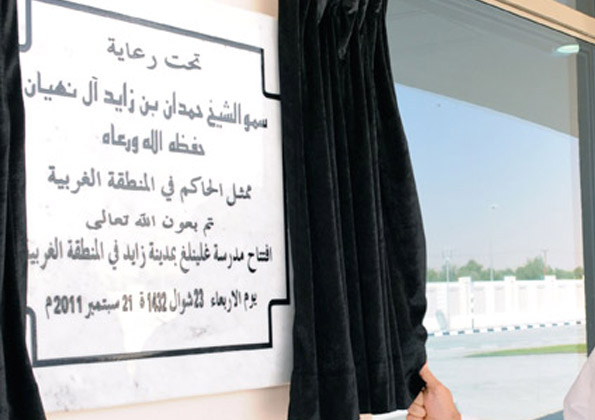 تحت رعاية
سمو الشيخ حمدان بن زايد آل نهيان
حفظه الله ورعاه
ممثل الحاكم في المنطقة الغربية
تم بعون الله تعالى
افتتاح مدرسة غلينلغ بمدينة زايد في المنطقة الغربية
يوم الاربعاء 23 شوال 1432 ة 21 سبتمبر 2011 م